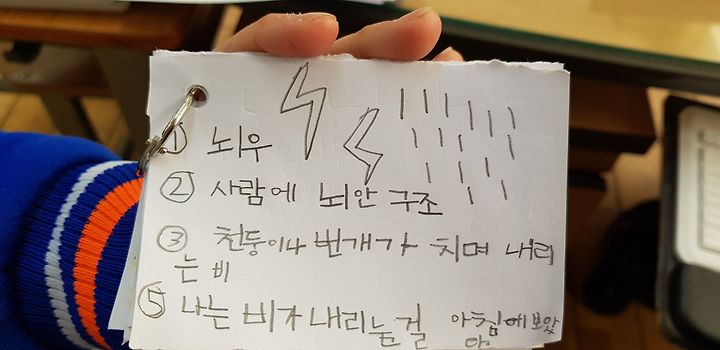 ① 뇌우
② 사람에 뇌안 구조
③ 천둥이나 번개가 치며 내리
는 비
⑤ 나는 비가 내리는걸 아침에 보았
다